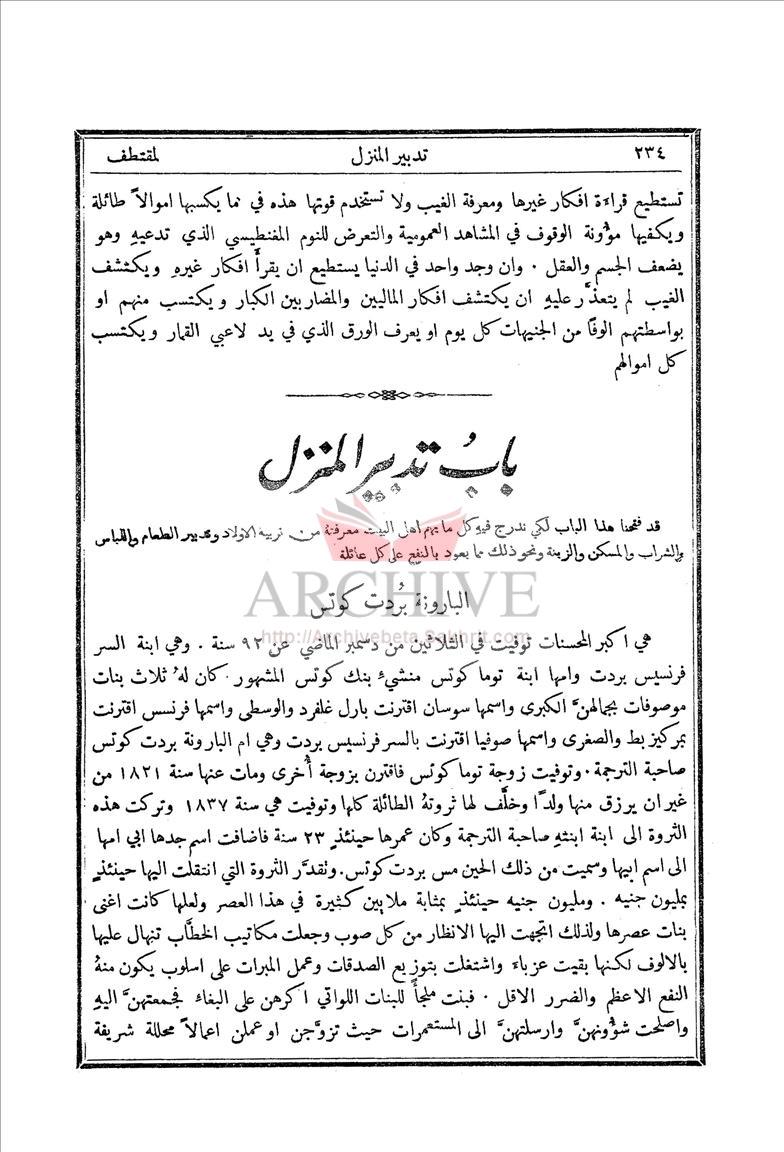 ٢٣٤ تدبير المنزل لمقتطف
تستطيع قراءة افكار غيرها ومعرفة الغيب ولا تستخدم قوتها هذه في نما يكسبها اموالاً طائلة
ويكفيها مؤونة الوقوف في المشاهد العمومية والتعرض للنوم المغنطيسي الذي تدعيهِ وهو
يضعف الجسم والعقل . وان وجد واحد في الدنيا يستطيع ان يقرأ افكار غيرهِ ويكتشف
الغيب لم يتعذَّر عليهِ ان يكتشف افكار الماليين والمضاربين الكبار ويكتسب منهم او
بواسطتهم الوفًا من الجنيهات كل يوم او يعرف الورق الذي في يد لاعبي القمار ويكتسب
كل اموالهم
بابُ تدبير المنزل
قد فتحنا هذا الباب لكي ندرج فيهِ كل ما يهم اهل البيت معرفتهُ من تربية الاولاد وتدبير الطعام واللباس
والشراب والمسكن والزينة ونحو ذلك مما يعود بالنفع على كل عائلة
ARCHIVE
البارونة بُردت كوتس
http://Archivebeta.Sakhrit.com
هي اكبر المحسنات توفيت في الثلاثين من دسمبر الماضي عن ٩٢ سنة . وهي ابنة السر
فرنسيس بردت وامها ابنة توما كوتس منشيء بنك كوتس المشهور . كان لهُ ثلاث بنات
موصوفات بجمالهنَّ الكبرى واسمها سوسان اقترنت بارل غلفرد والوسطى واسمها فرنسس اقترنت
بمركيز بط والصغرى واسمها صوفيا اقترنت بالسر فرنسيس بردت وهي ام البارونة بردت كوتس
صاحبة الترجمة . وتوفيت زوجة توما كوتس فاقترن بزوجة أُخرى ومات عنها سنة ١٨٢١ من
غير ان يرزق منها ولدًا وخلَّف لها ثروتهُ الطائلة كلها وتوفيت هي سنة ١٨٣٧ وتركت هذه
الثروة الى ابنة ابنتهِ صاحبة الترجمة وكان عمرها حينئذٍ ٢٣ سنة فاضافت اسم جدها ابي امها
الى اسم ابيها وسميت من ذلك الحين مس بردت كوتس . وتقدَّر الثروة التي انتقلت اليها حينئذٍ
بمليون جنيه . ومليون جنيه حينئذٍ بمثابة ملايين كثيرة في هذا العصر ولعلها كانت اغنى
بنات عصرها ولذلك اتجهت اليها الانظار من كل صوب وجعلت مكاتيب الخطَّاب تنهال عليها
بالالوف لكنها بقيت عزباء واشتغلت بتوزيع الصدقات وعمل المبرات على اسلوب يكون منهُ
النفع الاعظم والضرر الاقل . فبنت ملجأً للبنات اللواتي اكرهن على البغاء فجمعتهنَّ اليهِ
واصلحت شؤُونهنَّ وارسلتهنَّ الى المستعمرات حيث تزوَّجن او عملن اعمالاً محللة شريفة